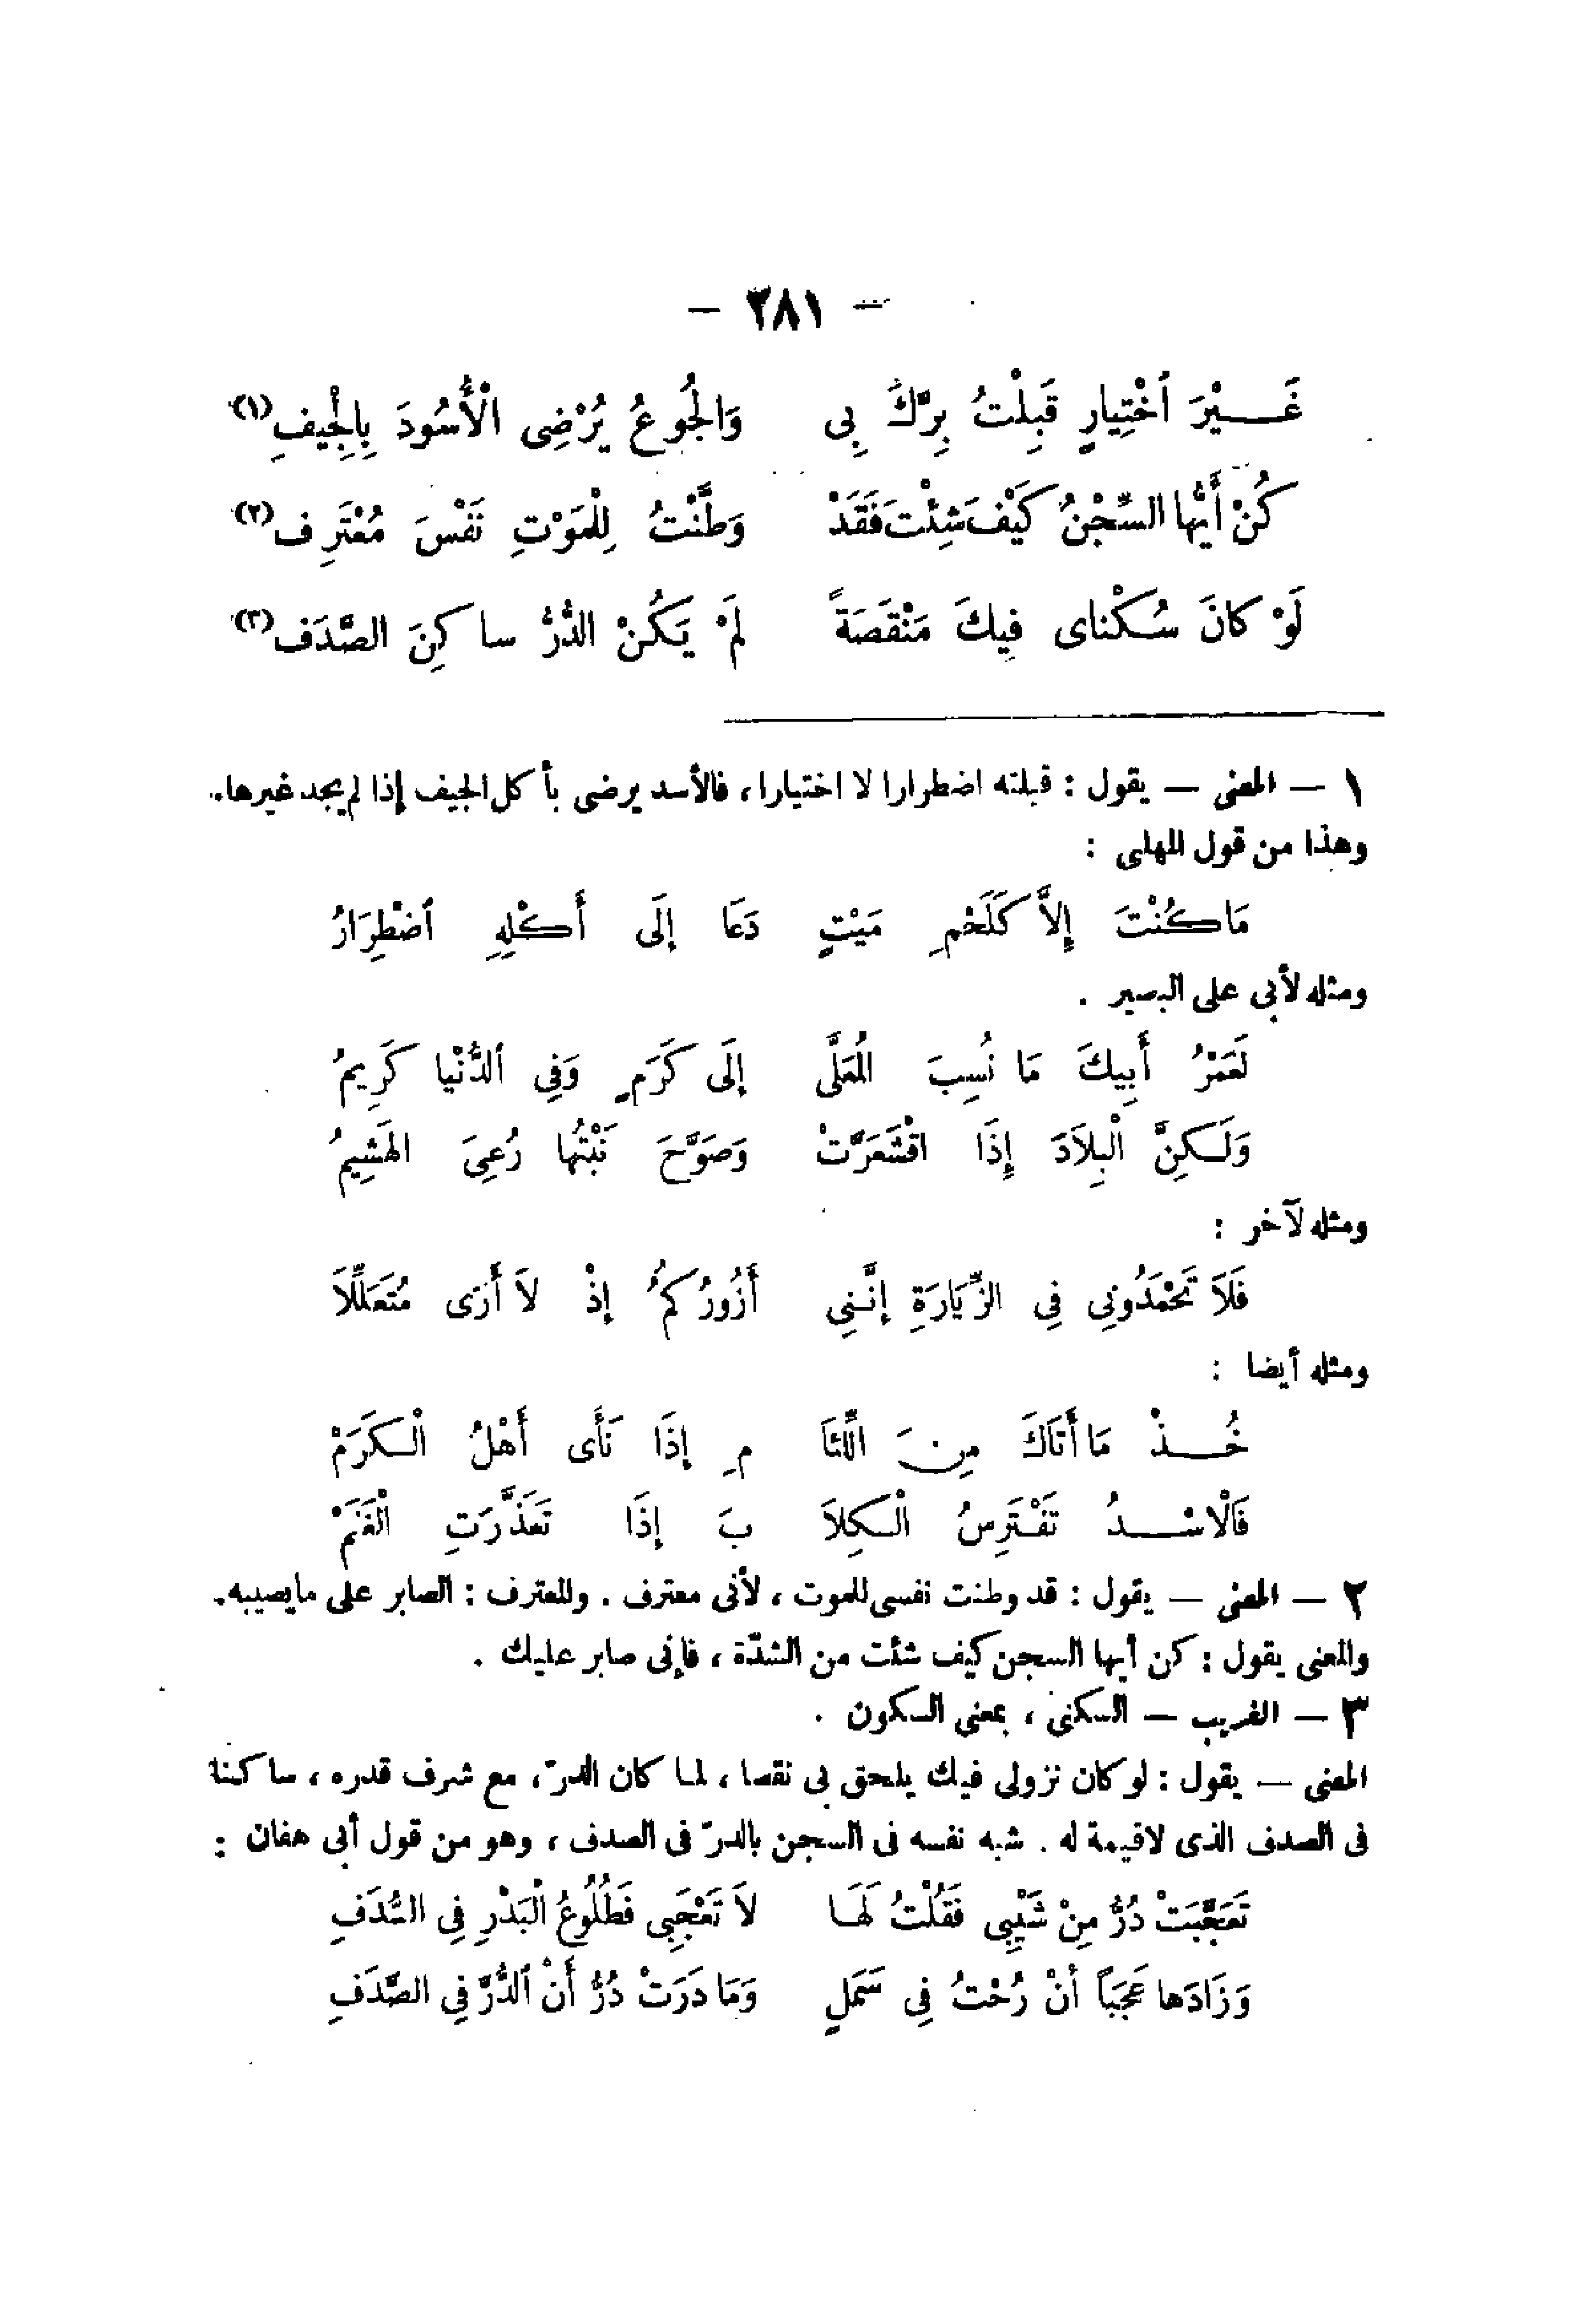 — ٢٨١ —
غَـــيْرَ ٱخْتِيارٍ قَبِلْتُ بِرَّكَ بِى وَالْجُوعُ يُرْضِى الْأُسُودَ بِالْجِيفِ(١)
كُنْ أَيُّها السِّجْنُ كَيْفَ شِئْتَ فَقَدْ وَطَّنْتُ لِلْمَوْتِ نَفْسَ مُعْتَرِفِ(٢)
لَوْ كانَ سُكْنَاىَ فِيكَ مَنْقَصَةً لَمْ يَكُنْ الدُّرُّ ساكِنَ الصَّدَفِ(٣)
١ — المعنى — يقول : قبلته اضطرارا لا اختيارا ، فالأسد يرضى بأكل الجيف إذا لم يجد غيرها.
وهذا من قول المهلبى :
مَا كُنْتَ إِلاَّ كَلَحْمِ مَيْتٍ دَعَا إِلَى أَكْلِهِ ٱضْطِرَارُ
ومثله لأبى على البصير .
لَعَمْرُ أَبِيكَ مَا نُسِبَ الْمُعَلَّى إِلَى كَرَمٍ وَفِى ٱلدُّنْيَا كَرِيمُ
وَلَـكِنَّ الْبِلاَدَ إِذَا اقْشَعَرَّتْ وَصَوَّحَ نَبْتُهَا رُعِىَ الْهَشِيمُ
ومثله لآخر :
فَلاَ تَحْمَدُونِى فِى الزِّيَارَةِ إِنَّـنِى أَزُورُكُمُ إِذْ لاَ أَرَى مُتَعَلِّلاَ
ومثله أيضا :
خُـــذْ مَا أَتَاكَ مِنَ اللِّئَا مِ إِذَا نَأَى أَهْلُ الْـكَرَمْ
فَالْاسْـــدُ تَفْـتَرِسُ الْـكِلاَ بَ إِذَا تَعَذَّرَتِ الْغَنَمْ
٢ — المعنى — يقول : قد وطنت نفسى للموت ، لأنى معترف . والمعترف : الصابر على مايصيبه.
والمعنى يقول : كن أيها السجن كيف شئت من الشدّة ، فإنى صابر عليك .
٣ — الغريب — السكنى ، بمعنى السكون .
المعنى — يقول : لو كان نزولى فيك يلحق بى نقصا ، لما كان الدرّ ، مع شرف قدره ، ساكنا
فى الصدف الذى لاقيمة له . شبه نفسه فى السجن بالدرّ فى الصدف ، وهو من قول أبى هفان :
تَعَجَّبَتْ دُرُّ مِنْ شَيْبِى فَقُلْتُ لَهَـا لاَ تَعْجَبِى فَطُلُوعُ الْبَدْرِ فِى السُّدَفِ
وَزَادَها عَجَبًا أنْ رُحْتُ فِى سَمَلٍ وَمَا دَرَتْ دُرُّ أَنْ ٱلدُّرَّ فِى الصَّدَفِ